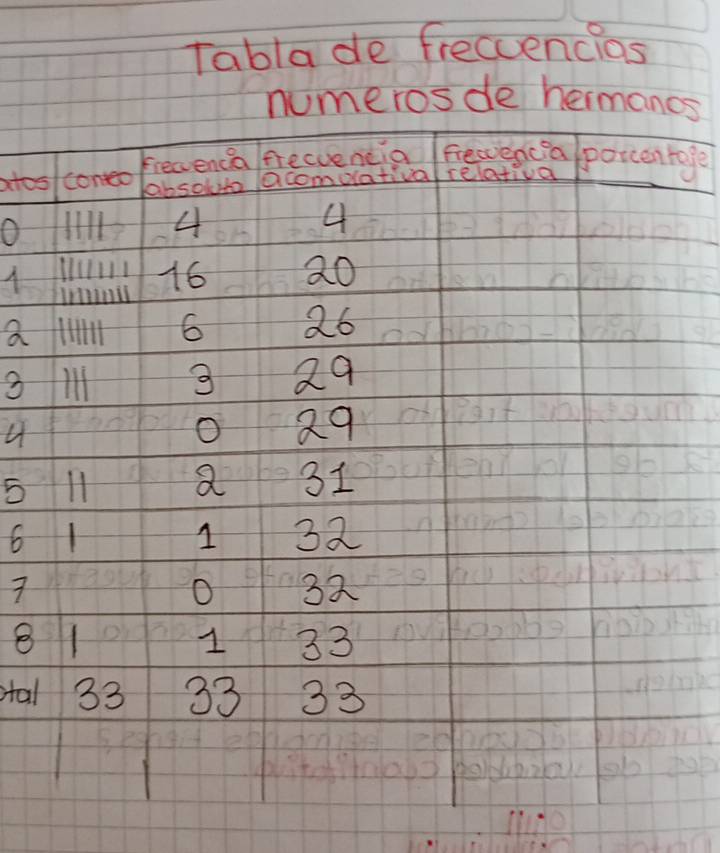 Tabla de frecuencias
numeros de hermanos
atos conteo frecuencia absoluta frecuencia acomulativa frecuencia relativa porcentaje
0 IIIII 4 4
1 16 20
2 IIIIII 6 26
3 III 3 29
4 0 29
5 II 2 31
6 I 1 32
7 0 32
8 I 1 33
otal 33 33 33